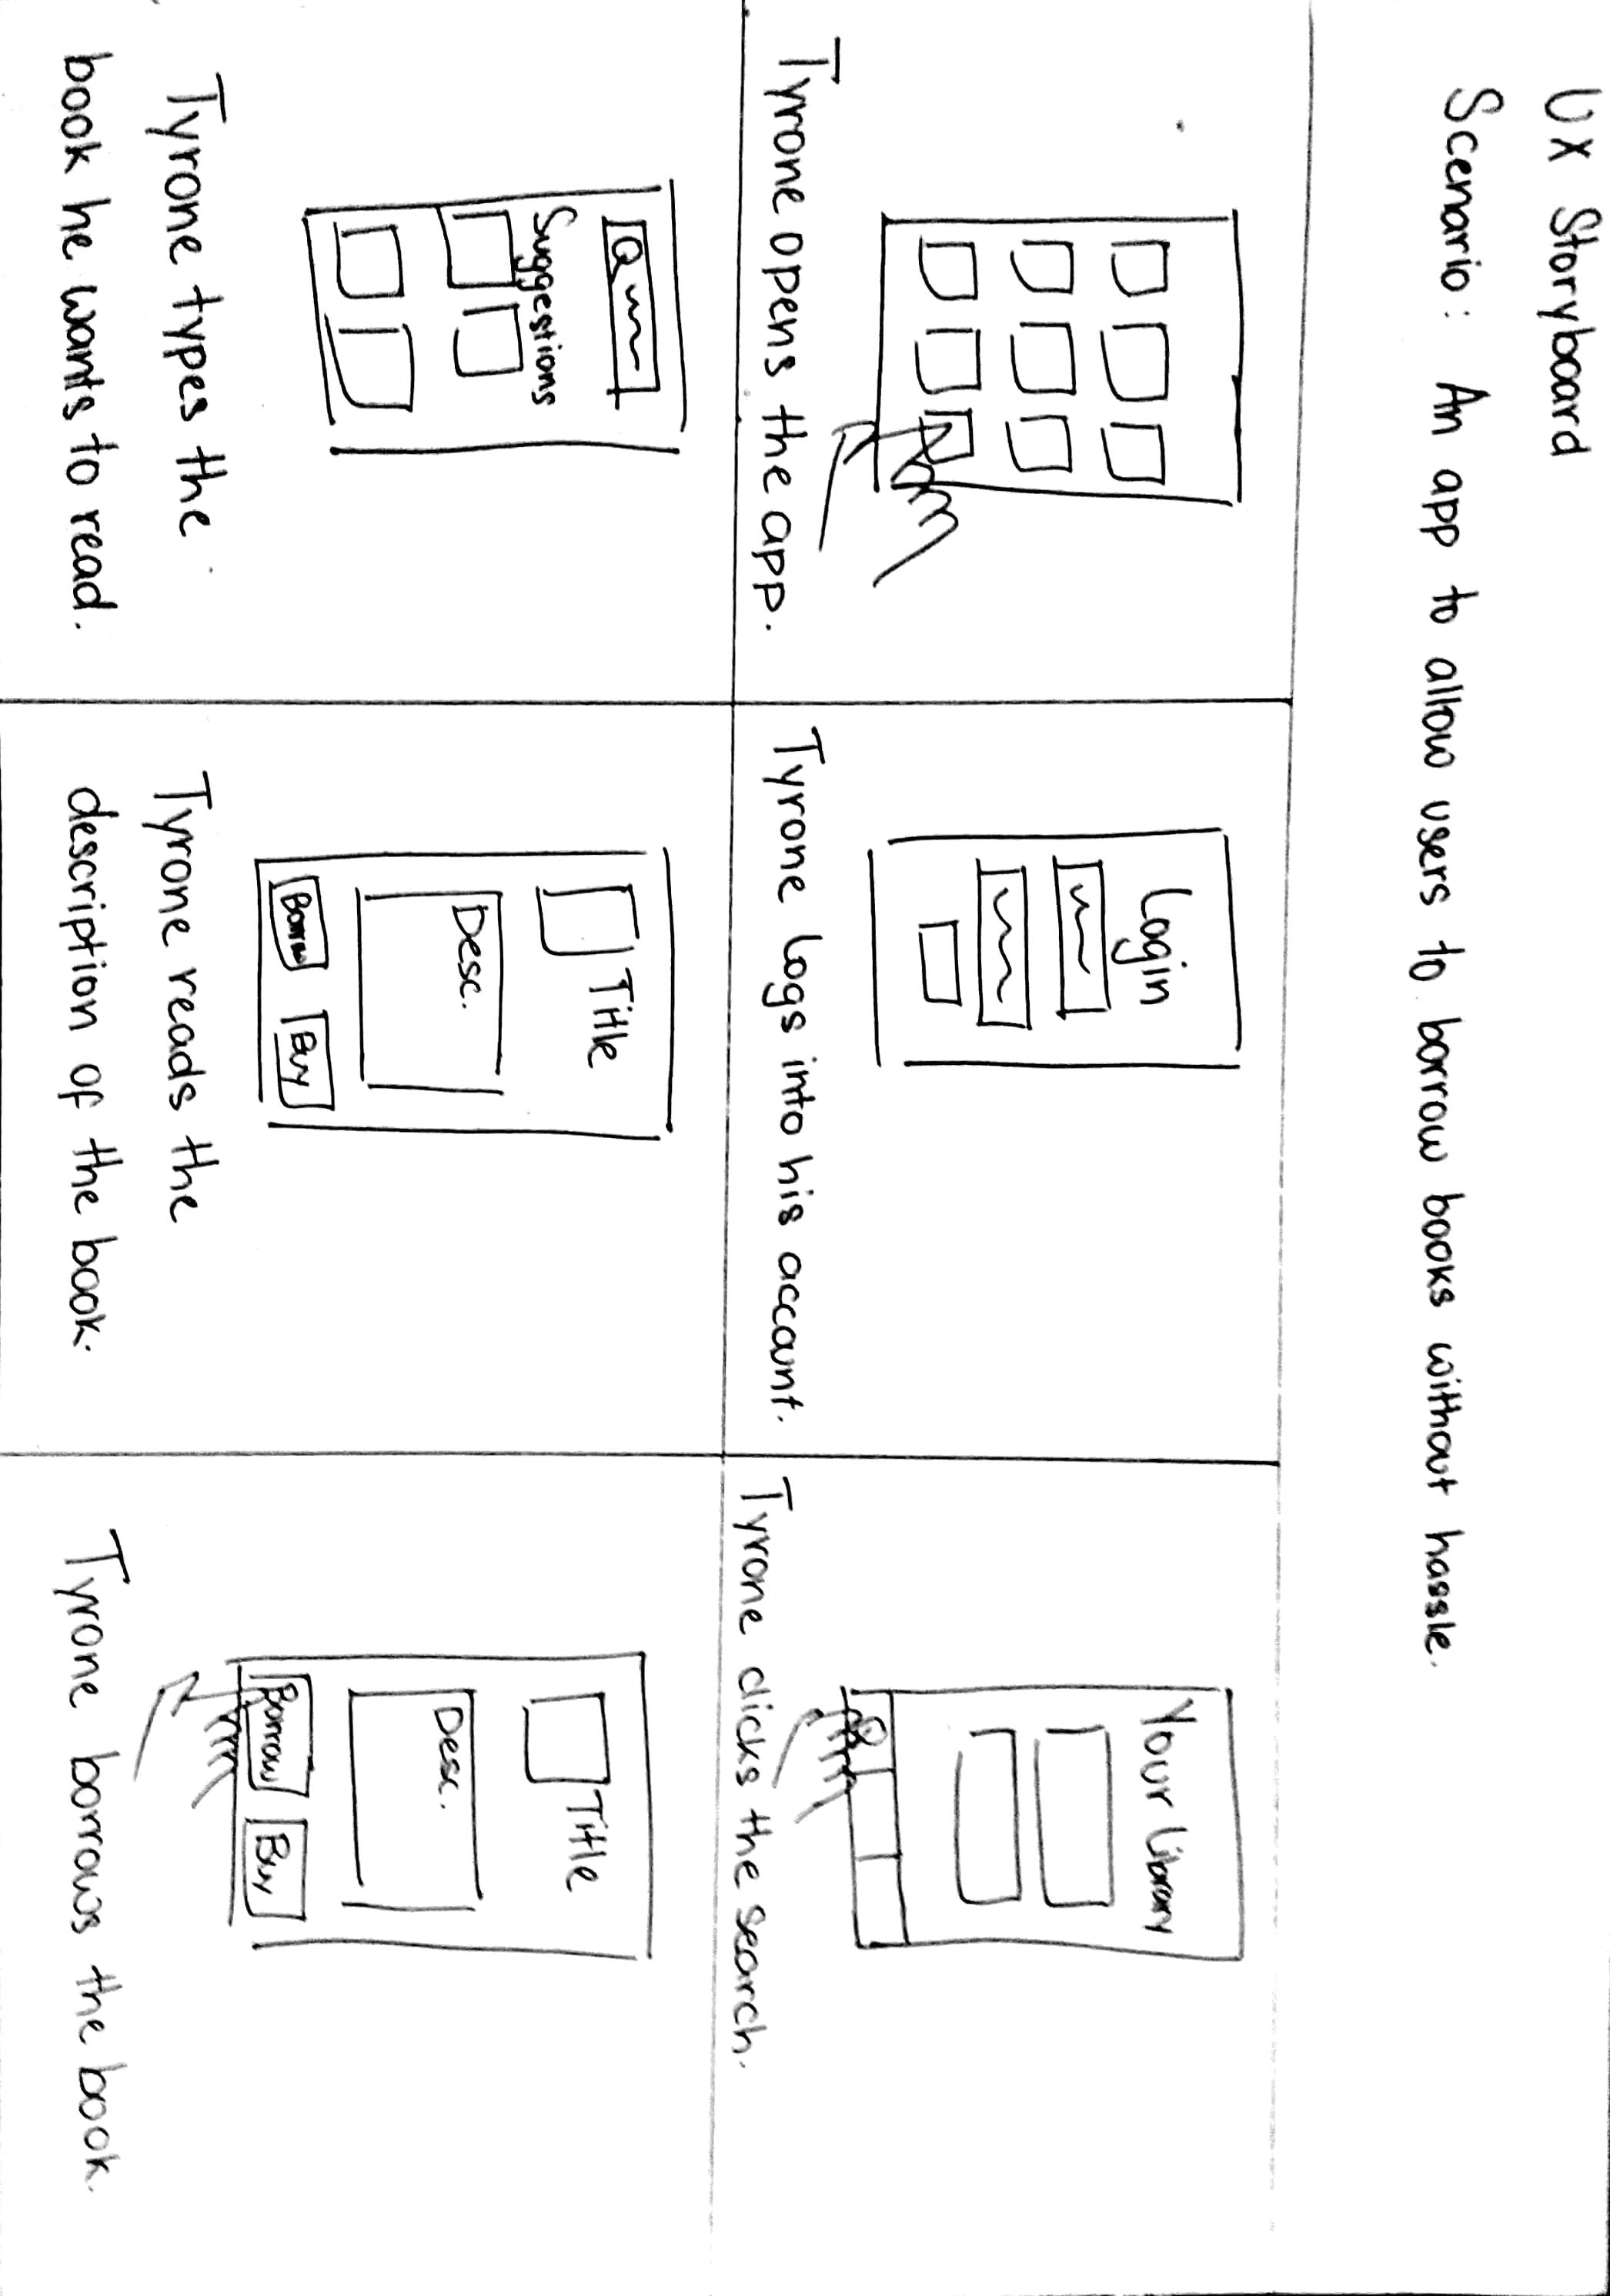 UX Storyboard
Scenario: An app to allow users to borrow books without hassle.
Login
Tyrone opens the app.
Tyrone logs into his account.
Your Library
Tyrone clicks the search.
Suggestions
Tyrone types the
book he wants to read.
Title
Desc.
Borrow
Buy
Tyrone reads the
description of the book.
Title
Desc.
Borrow
Buy
Tyrone borrows the book.